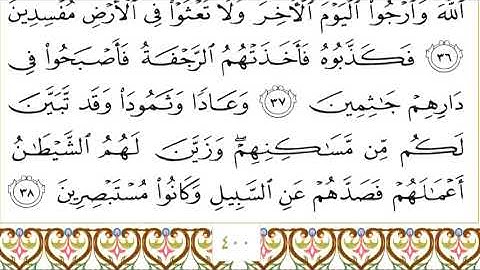 ٱللَّهَ وَٱرْجُوا۟ ٱلْيَوْمَ ٱلْءَاخِرَ وَلَا تَعْثَوْا۟ فِى ٱلْأَرْضِ مُفْسِدِينَ
٣٦ فَكَذَّبُوهُ فَأَخَذَتْهُمُ ٱلرَّجْفَةُ فَأَصْبَحُوا۟ فِى
دَارِهِمْ جَٰثِمِينَ ٣٧ وَعَادًا وَثَمُودَا۟ وَقَد تَّبَيَّنَ
لَكُم مِّن مَّسَٰكِنِهِمْ ۖ وَزَيَّنَ لَهُمُ ٱلشَّيْطَٰنُ
أَعْمَٰلَهُمْ فَصَدَّهُمْ عَنِ ٱلسَّبِيلِ وَكَانُوا۟ مُسْتَبْصِرِينَ ٣٨
٤٠٠